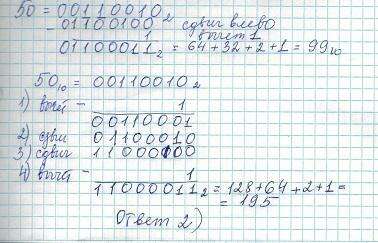 50 = 00110010₂
- 01100100 сдвиг влево
1 вычет 1
01100011₂ = 64 + 32 + 2 + 1 = 99₁₀
50₁₀ = 00110010₂
1) вычет - 1
00110001
2) сдвиг 01100010
3) сдвиг 11000100
4) выч - 1
11000011₂ = 128 + 64 + 2 + 1 =
= 195
Ответ 2)